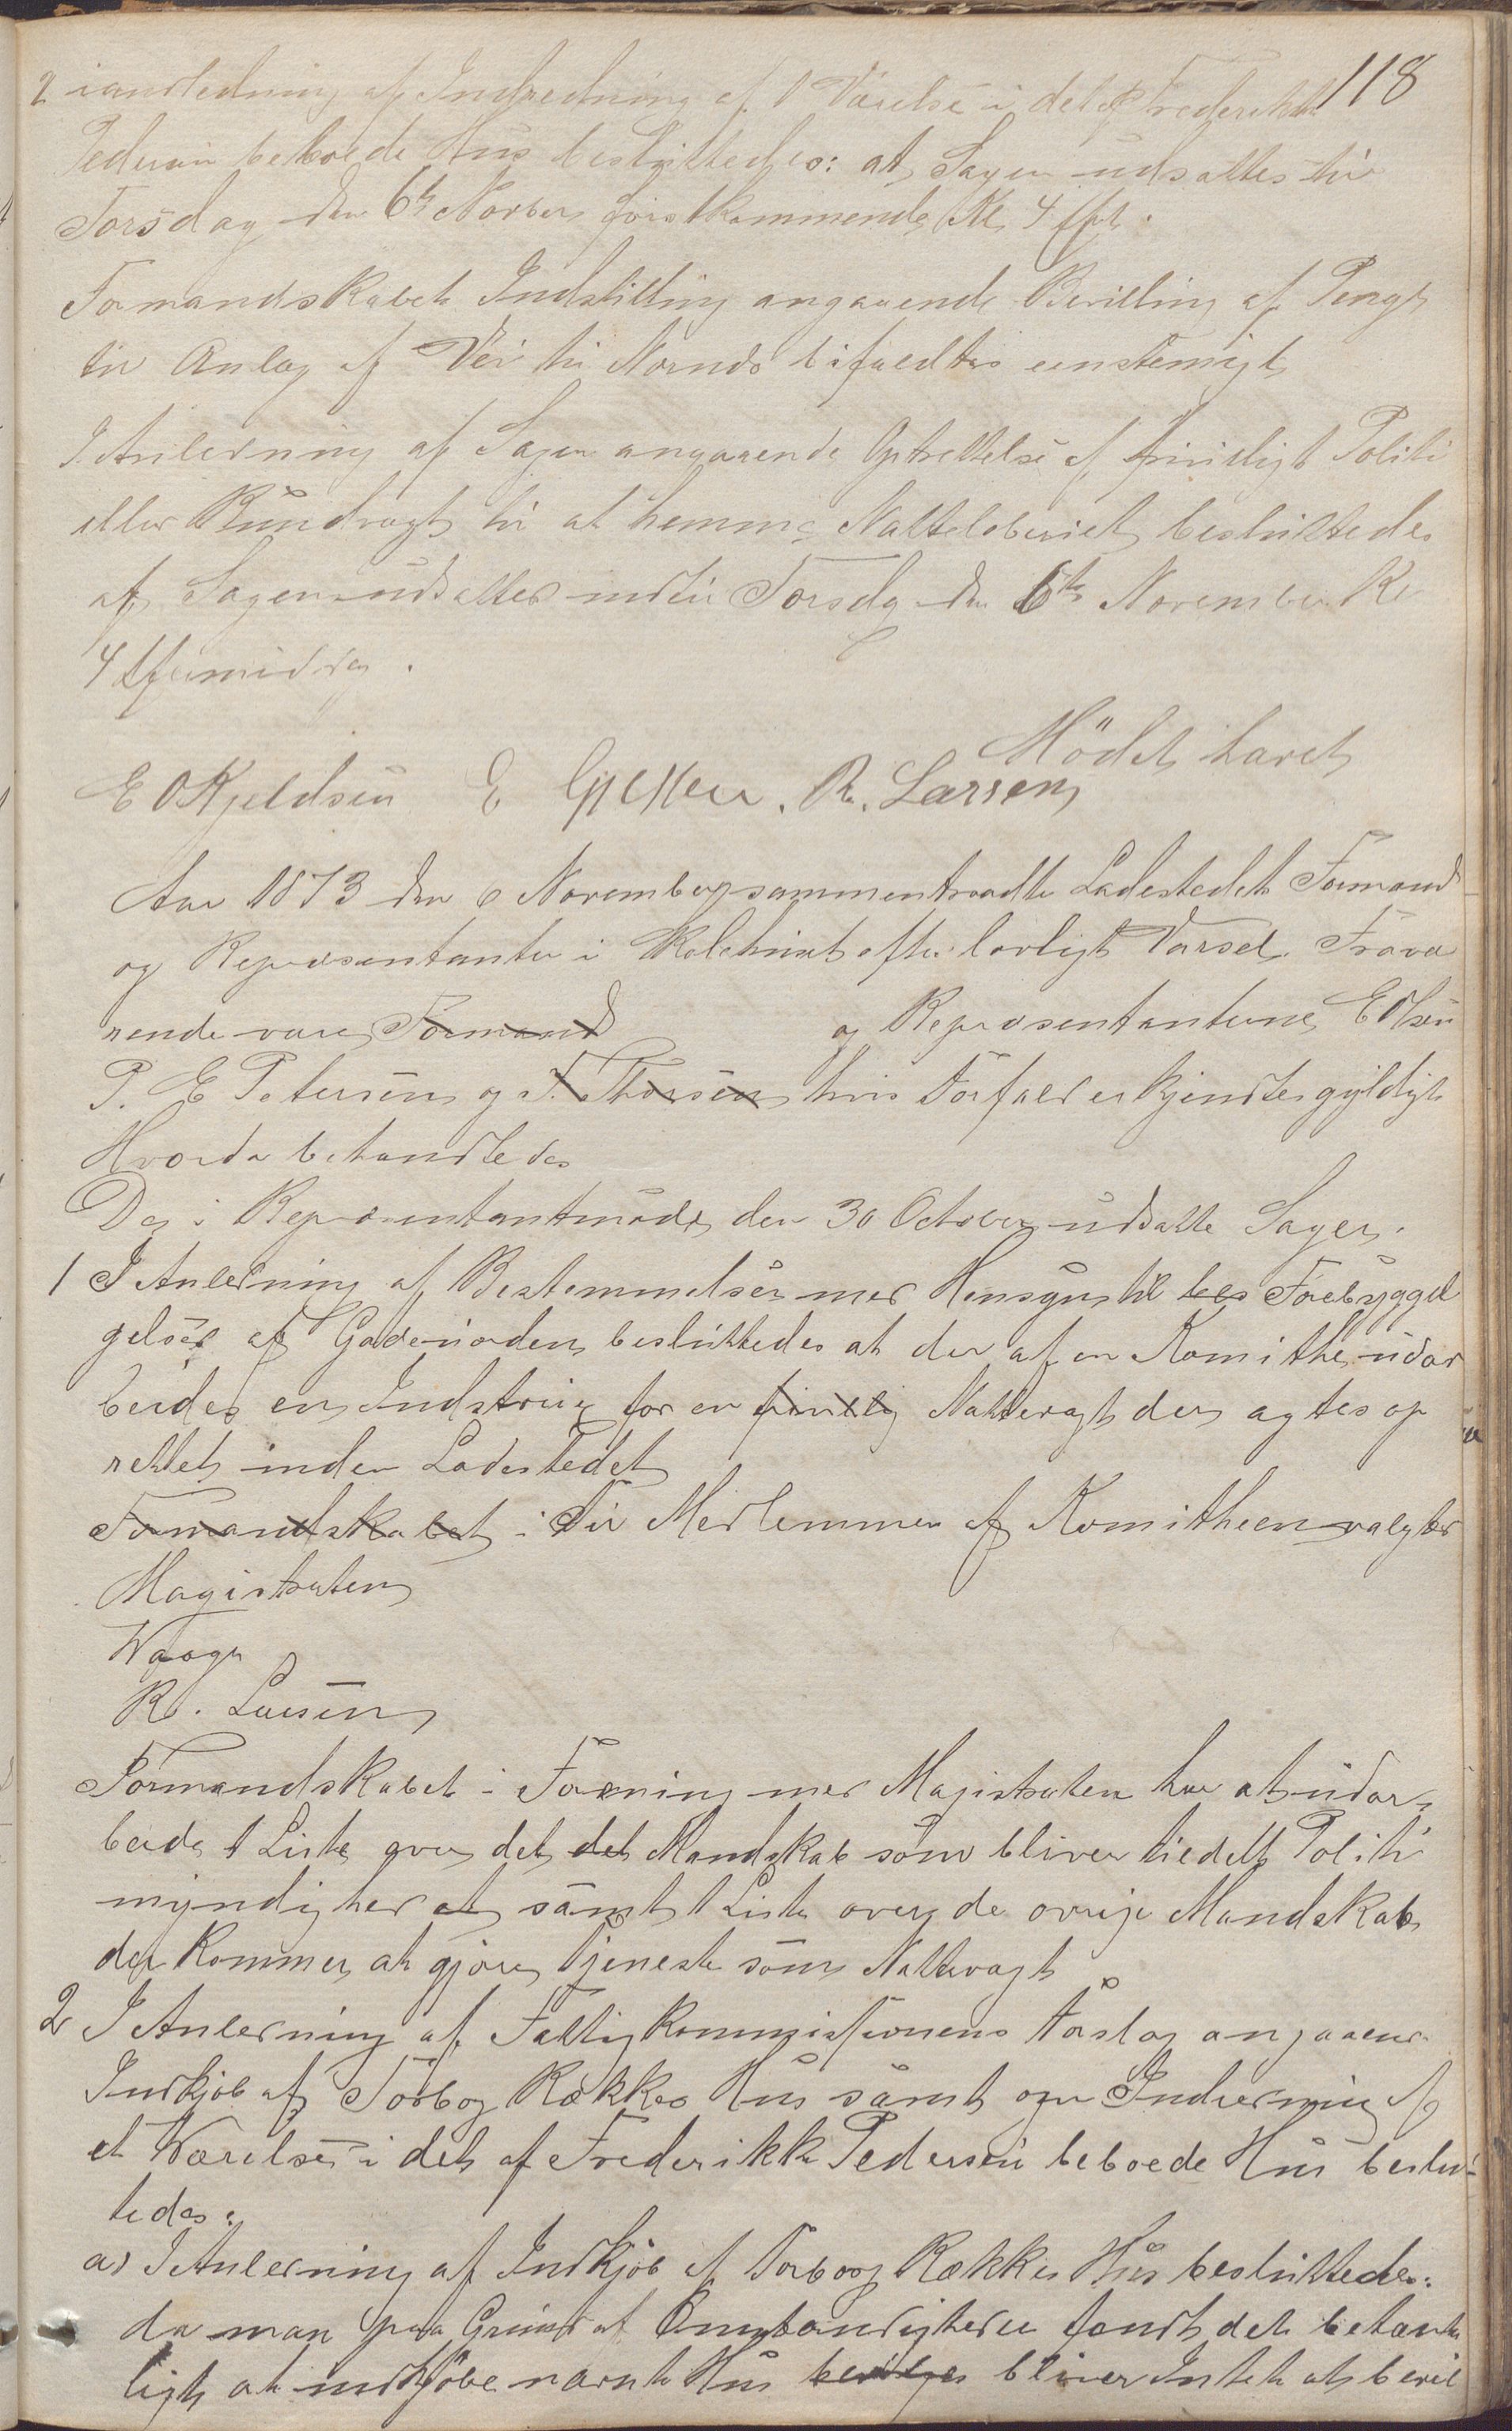 118
2 ianledning af Indredning af 1 Værelse i det af Frederikke
Pedersen beboede Hus besluttedes: at Sagen udsattes til
Torsdag den 6te Novber førstkommende Kl 4 Eft.
Formandskabets Indstilling angaaende Bevilling af Penge
til Anlæg af Vei til bifaldtes eenstemigt
I Anledning af Sagen angaaende Oprettelse af frivilligt Politi
eller Brandvagt til at hemme Natteløberiet besluttedes
at Sagen udsattes indtil Torsdg den 6te November Kl
4 Eftermiddag.
Mödet hævet
E O Kjeldsen E R. Larsen
Aar 1873 den 6 November sammentraadte Ladestedets Formænd
og Repræsentanter i Skolehuset efter lovligt Varsel. Fravæ
rende vare Formænd og Repræsentanterne E Olsen
P. E Petersen og F. Thorsen hvis Forfald erkjendtes gyldigt
Hvorda behandledes
De i Repræsentantmøde den 30 October udsatte Sager.
1 I Anledning af Bestemmelser med Hensyn til Forebyggel
gelse af Gadeuorden besluttedes at der af en Komithe udar
beides en Instrux for en frivillig Nattevagt der agtes op
rettet inden Ladestedet
Formandskabet i Til Medlemmer af Komitheen valgtes
Magistraten
Waage
R. Larsen
Formandskabet i Forening med Magistraten har at udar-
beide 1 Liste over det det Mandskab som bliver tiedelt Politi
myndighed at samt 1 Liste over de øvrige Mandskab
der kommer at gjøre Tjeneste som Nattevagt
2 I Anledning af Fattigkommissionens Forslag angaaend
Indkjøb af Torborg Rækkes Hus samt om Indredning af
et Værelse i det af Frederikke Pedersen beboede Hus beslut-
tedes:
a) I Anledning af Indkjøb af Torborg Rækkes Hus besluttedes:
da man paa Grund af Omstændigheder fandt det betænke
ligt at indkjøbe nævnte Hus bevilges bliver Intet at bevil